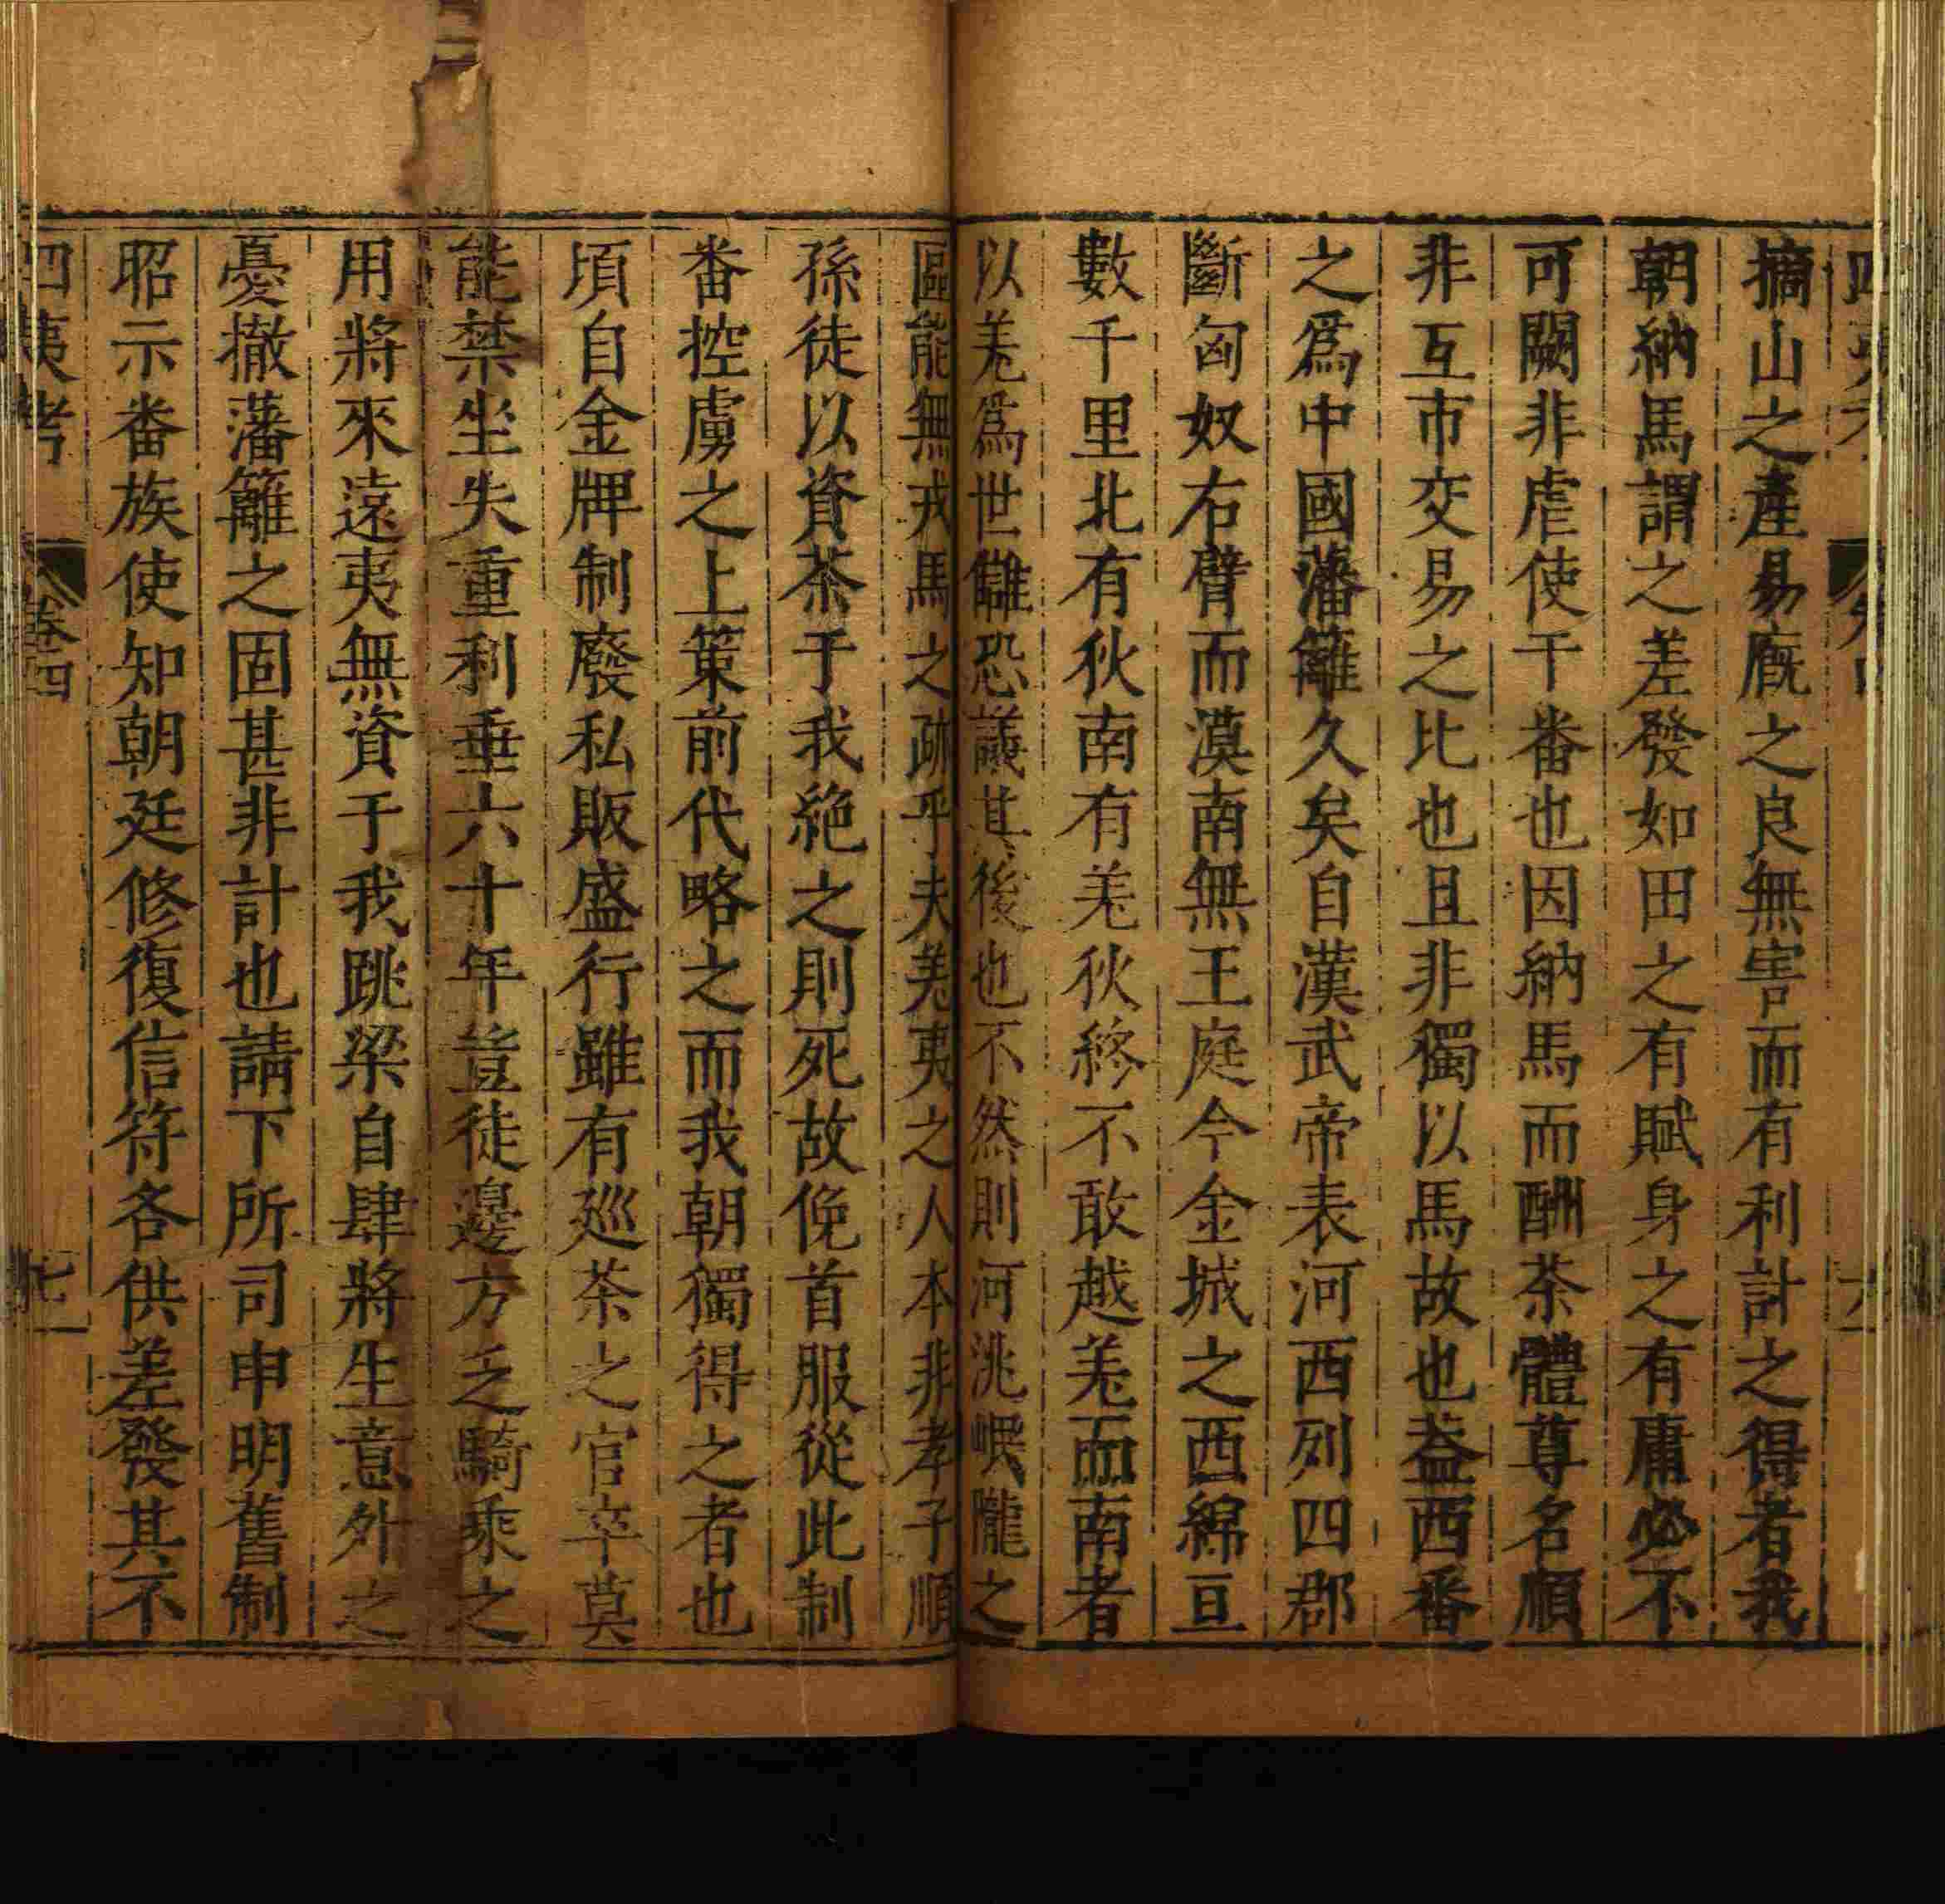 摘山之產易廐之良無害而有利計之得者我
朝納馬謂之差發如田之有賦身之有庸必不
可闕非虐使干番也因納馬而酬茶體尊名順
非互市交易之比也且非獨以馬故也盖西番
之爲中國藩籬久矣自漢武帝表河西列四郡
斷匈奴右臂而漠南無王庭今金城之西綿亘
數千里北有狄南有羌狄終不敢越羌而南者
以羌爲世讎恐議其後也不然則河洮岷隴之
區能無戎馬之跡乎夫羌夷之人本非孝子順
孫徒以資茶于我絶之則死故俛首服從此制
番控虜之上策前代略之而我朝獨得之者也
頃自金牌制廢私販盛行雖有廵茶之官卒莫
能禁坐失重利垂六十年豈徒邊方乏騎乘之
用將來遠夷無資于我跳梁自肆將生意外之
憂撤藩籬之固甚非計也請下所司申明舊制
昭示番族使知朝廷修復信符各供差發其不
四夷考 卷四 七